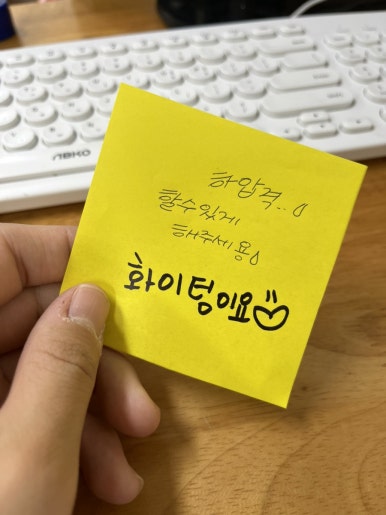 ABKO
하압격..!
할수있게
해주세용!
화이팅이요♡